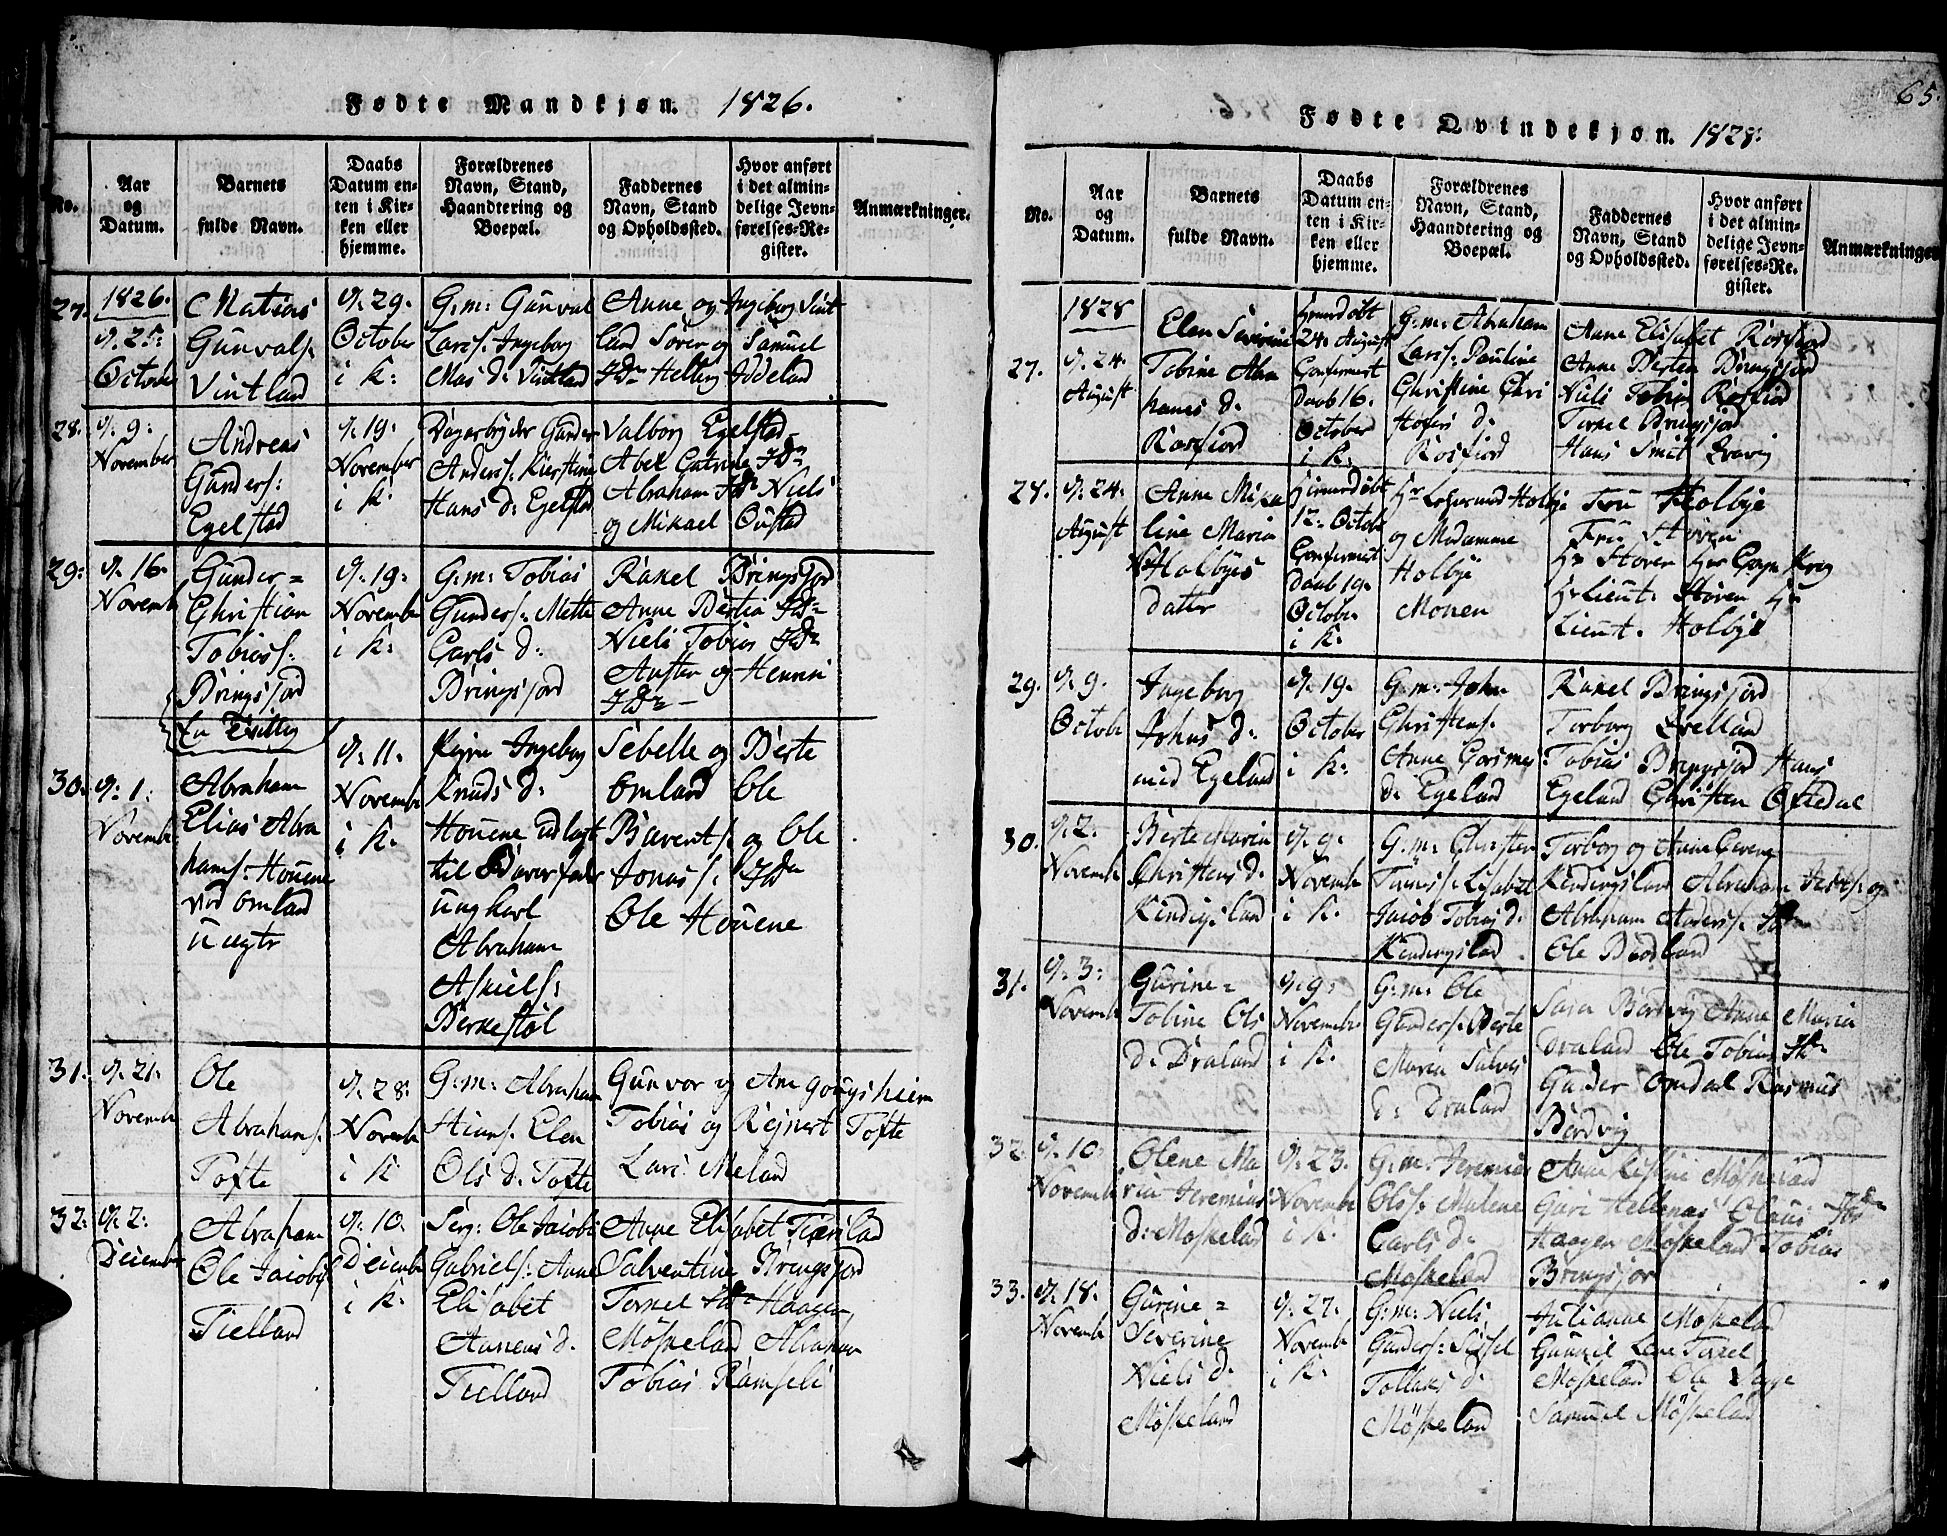 Fødte Mandkjøn. 1826.
No.
Aar
og
Datum.
Barnets
fulde Navn.
Daabs
Datum en-
ten i Kir-
ken eller
hjemme.
Forældrenes
Navn, Stand,
Haandtering og
Boepæl.
Faddernes
Navn, Stand
og Opholdssted.
Hvor anført
i det almin-
delige Jevn-
førelses-Re-
gister.
Anmærkninger.
27.
1826.
d. 25:
October
Matias
Gunvals.
Vintland
d. 29.
October
i K:
G:m: Gunval
Lars s. Ingeborg
Mas d: Vintland
Anne og Ingeborg Vint
land Søren og Samuel
Helle Iddeland
28.
d. 9:
November
Andreas
Gunders:
Egelstad
d. 19.
November
i K:
Gunder
Anders s. Kirstine
Hans d: Egelstad
Valborg Egelstad
Abel Catrine Ibdm
Abraham Ibdm Niels
og Mikael
29:
d. 16.
Novemb
Gunder=
Christian
Tobias s.
Bringsjord
En Tvilling
d. 19:
Novembe
i K:
G:m: Tobias
Gunders. Mette
Carls d:
Bringsjord
Rakel Bringsjord
Anne Bertia Ibdm
Niels Tobias Ibdm
og Henrik
Ibdm
30.
d. 1:
Novembe
Abraham
Elias Abra
hams. Houene
ved Omland
uægte
d. 11.
Novembe
i K.
Pigen Ingeborg
Knuds d:
Houene udlagt
til Barnefader
ungkarl
Abraham
Asniels:
Birkestøl
Sebelle og Berte
Omland Ole
Barents. og Ole
Jonas s. Ibdm
Ole Houene
31.
d. 21:
Novemb
Ole
Abrahams.
Tofte
d. 28:
Novemb
i K
G:m: Abraham
Stians. Elen
Ols d: Tofte
Gunvor og Ane Gougsheim
Tobias og Rejnert Tofte
Lars Meland
32:
d. 2:
December
Abraham
Ole Jacobs
Tielland
d. 10.
Decembe
i K:
Serg: Ole Jacobs
Gabriels: Anne
Elisabet
Aanens d.
Tielland
Anne Elisabet Tiersland
Salventine Bringsjord
Terkel Ibdm Haagen
Møskeland Abraham
Tobias Ramsli
65.
Fødte Qvindekjøn. 1828:
No.
Aar
og
Datum.
Barnets
fulde Navn.
Daabs
Datum en-
ten i Kir-
ken eller
hjemme.
Forældrenes
Navn, Stand,
Haandtering og
Boepæl.
Faddernes
Navn, Stand
og Opholdssted.
Hvor anført
i det almin-
delige Jevn-
førelses-Re-
gister.
Anmærkninger
27.
1828
d. 24.
August
Elen Severine
Tobine Abra
hams d.
Rosfiord
hiemdøbt
24. August
Confermert
Daab 16.
October
i K.
G:m: Abraham
Lars s. Pauline
Christine Chri
stofers d.
Rosfiord
Anne Elisabet Rosfiord
Anne Bertea Bringsjord
Niels Tobias Rosfiord
Terkel Bringsjord
Hans Smit
28.
d. 24.
August
Anne Mika
line Maria
Holbyes
datter
hiemdøbt
12. Octobe
Confermert
Daab 19.
Octobe.
i K.
Holbye
og Madamme
Holbye
Monen
Fru Holbye
Fru Støren
Hr Støren Hr Capn Krog
Hr Lieut. Støren Hr
Lieut. Holbye
29.
d. 9.
Octobe
Ingeborg
Johns d.
med Egeland
d. 19.
October
i K:
G:m: John
Christens.
Anne Gorsmes
d. Egeland
Rakel Bringsjord
Torborg Qvelland
Tobias Bringsjord Hans
Egeland Christen Oftedal
30.
d. 2.
Novembe
Berte Maria
Christens d.
Kindigsland
d. 9.
Novembe
i K.
G:m: Christen
Lisabet
Jacob Tobias d.
Kindingsland
Torborg og Anne
Kindingsland Abraham og
Abraham Anders s. Ibdm
Ole
31.
d. 3:
Novemb
Gurine=
Tobine Ols
d. Draland
d. 9:
Novembe
i K:
G:m: Ole
Gunders. Berte
Maria Salves
d: Draland
Sara Bardvig Anne Maria
Draland Ole Tobias Ibdm
Gunder Omdal Rasmus
Bardvig
32.
d. 10.
Novemb
Olene Ma
ria Jeremias
d: Møskeland
d. 23.
Novembe
i K.
G:m: Jeremias
Ols s. Malene
Carls d.
Møskeland
Anne Møskeland
Guri Hellenes Claus Ibdm
Haagen Møskeland Tobias
Bringsjor
33.
d. 18.
Novembe
Gurine=
Severine
Niels d.
Møskeland
d. 27.
Novembe
i K.
G:m: Niels
Gunders: Sissel
Tollaks d.
Møskeland
Juliane Møskeland
Gunnil Lene Terkel
Møskeland Ole
Samuel Møskeland